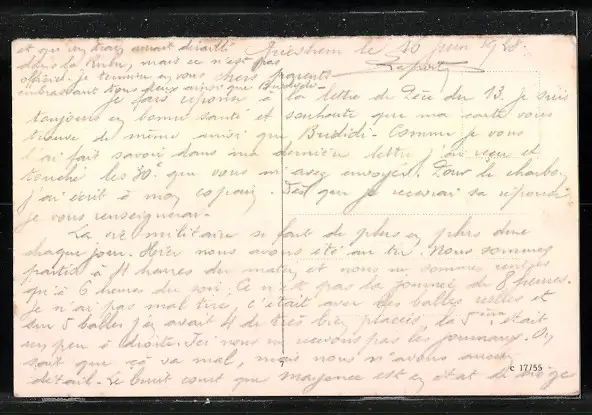 Griesheim le 16 juin 1923.
chers parents
je fais réponse à la lettre de Père du 13. Je suis
toujours en bonne santé et souhaite que ma carte vous
trouve de même ainsi que Budidi. Comme je vous
l'ai fait savoir dans ma dernière lettre j'ai reçu et
touché les 30f que vous m'avez envoyé. Pour le charbon
j'ai écrit à mon copain. Dès que je recevrai sa réponse
je vous renseignerai.
La vie militaire se fait de plus en plus dure
chaque jour. Hier nous avons été au tir. Nous sommes
partis à 4 heures du matin et nous ne sommes rentrés
qu'à 6 heures du soir. Ce n'est pas la journée de 8 heures.
Je n'ai pas mal tiré, c'était avec des balles réelles et
sur 5 balles j'en avait 4 de très bien placés, la 5ème était
un peu à droite. Ici nous ne recevons pas les journaux. On
sait que ça va mal, mais nous n'avons aucun
détail. Le bruit court que Mayence est en état de siège
et qu'un train aurait déraillé
dans la Ruhr, mais ce n'est pas
officiel. Je termine en vous
embrassant tous deux ainsi que Budidi.
C 17/55